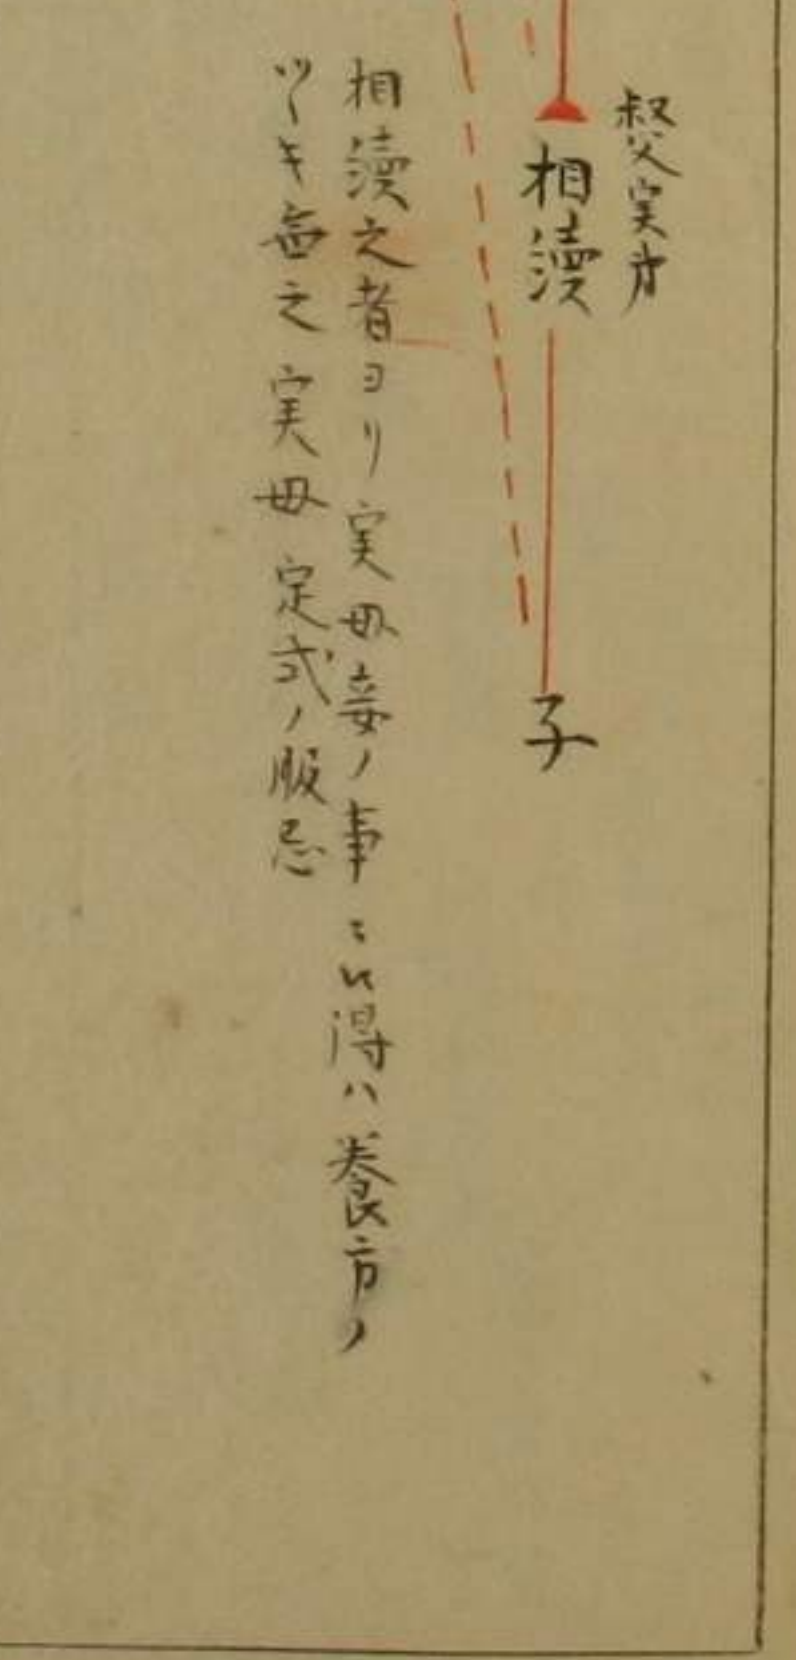 叔父実方
相續
子
相續之者ヨリ実母妾ノ事ニ候得ハ養方ノ
ツヽキ無之実母定式ノ服忌